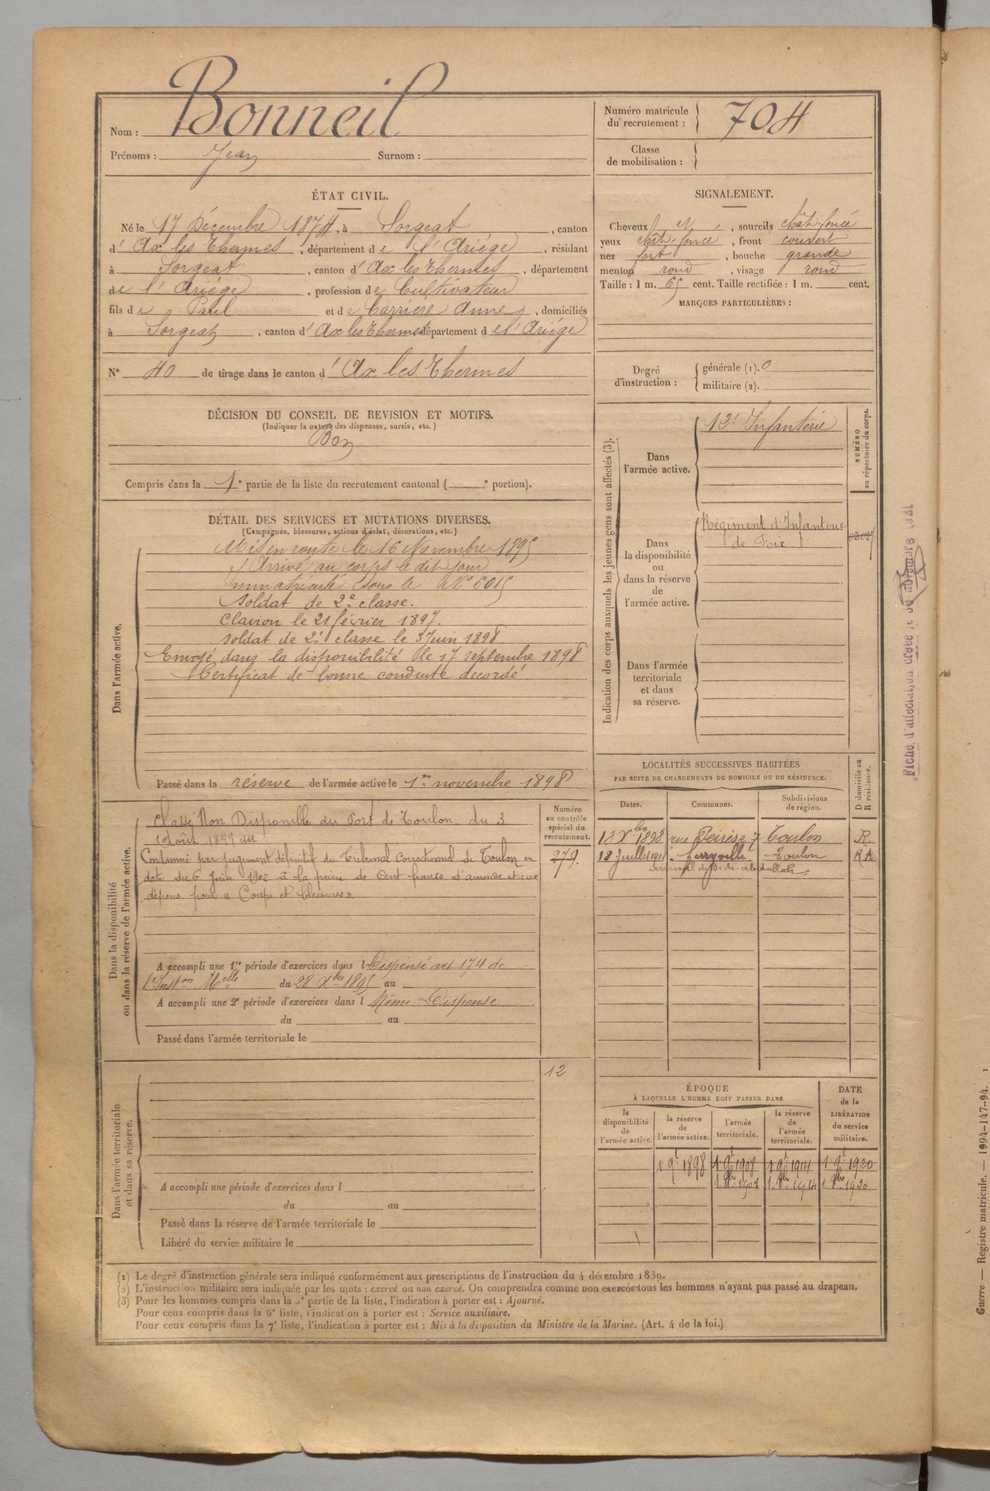 Bonneil
Nom :
Prénoms : Jean Surnom :
Numéro matricule
du recrutement : 704
Classe
de mobilisation :
ÉTAT CIVIL.
Né le 17 Décembre 1874, à Sorgeat, canton
d'Ax les Thermes, département de l'Ariège, résidant
à Sorgeat, canton d'Ax les Thermes, département
de l'Ariège, profession de Cultivateur
fils de Paul et de Carrière Anne, domiciliés
à Sorgeat, canton d'Ax les Thermes département de l'Ariège
N° 40 de tirage dans le canton d'Ax les Thermes
SIGNALEMENT.
Cheveux et, sourcils chât. foncé
yeux chât. foncé, front couvert
nez fort, bouche grande
menton rond, visage rond
Taille : 1 m. 65 cent. Taille rectifiée : 1 m. cent.
MARQUES PARTICULIÈRES :
Degré
d'instruction :
générale (1). 0
militaire (2).
DÉCISION DU CONSEIL DE REVISION ET MOTIFS.
(Indiquer la nature des dispenses, sursis, etc.)
Bon
Compris dans la 1e partie de la liste du recrutement cantonal ( e portion).
DÉTAIL DES SERVICES ET MUTATIONS DIVERSES.
(Campagnes, blessures, actions d'éclat, décorations, etc.)
Dans l'armée active.
Mis en route le 16 Novembre 1895
Arrivé au corps le dit jour
Immatriculé sous le N° 6015
Soldat de 2e classe.
Clairon le 21 février 1897.
soldat de 2e classe le 3 Juin 1898
Envoyé dans la disponibilité le 17 septembre 1898
Certificat de bonne conduite accordé
Passé dans la réserve de l'armée active le 1er novembre 1898
Indication des corps auxquels les jeunes gens sont affectés (3).
NUMÉRO
au répertoire du corps.
Dans
l'armée active.
12e Infanterie
Dans
la disponibilité
ou
dans la réserve
de
l'armée active.
Régiment d'Infanterie
de Foix
Dans l'armée
territoriale
et dans
sa réserve.
Fiche d'affectation créée le
Dans la disponibilité
ou dans la réserve de l'armée active.
Numéro
au contrôle
spécial du
recrutement.
279.
Classé Non Disponible du Port de Toulon du 3
Août 1899 au
Condamné par jugement définitif du Tribunal Correctionnel de Toulon en
date du 6 Juin 1902 à la peine de Cent francs d'amende et aux
dépens pour « Coups et blessures ».
A accompli une 1re période d'exercices dans l Dispensé art 174 de
l'Inston Melle du 28 Xbre 1895 au
A accompli une 2e période d'exercices dans l Même Dispense
du au
Passé dans l'armée territoriale le
LOCALITÉS SUCCESSIVES HABITÉES
PAR SUITE DE CHANGEMENTS DE DOMICILE OU DE RÉSIDENCE.
D domicile ou
R résidence.
Dates. Communes. Subdivisions
de région.
12 Xbre 1898 rue Peirèse 7 Toulon R.
18 Juillet Toulon R
Dans l'armée territoriale
et dans sa réserve.
12
A accompli une période d'exercices dans l
du au
Passé dans la réserve de l'armée territoriale le
Libéré du service militaire le
ÉPOQUE
À LAQUELLE L'HOMME DOIT PASSER DANS
DATE
de la
LIBÉRATION
du service
militaire.
la
disponibilité
de
l'armée active.
la réserve
de
l'armée active.
l'armée
territoriale.
la réserve
de
l'armée
territoriale.
1 9bre 1898 1 9bre 1908 1 9bre 1914 1 9bre 1920
1 9bre 1908 1 9bre 1914 1 9bre 1920
(1) Le degré d'instruction générale sera indiqué conformément aux prescriptions de l'instruction du 4 décembre 1889.
(2) L'instruction militaire sera indiquée par les mots : exercé ou non exercé. On comprendra comme non exercés tous les hommes n'ayant pas passé au drapeau.
(3) Pour les hommes compris dans la 5e partie de la liste, l'indication à porter est : Ajourné.
Pour ceux compris dans la 6e liste, l'indication à porter est : Service auxiliaire.
Pour ceux compris dans la 7e liste, l'indication à porter est : Mis à la disposition du Ministre de la Marine. (Art. 4 de la loi.)
Guerre — Registre matricule. — 1994-147-94.